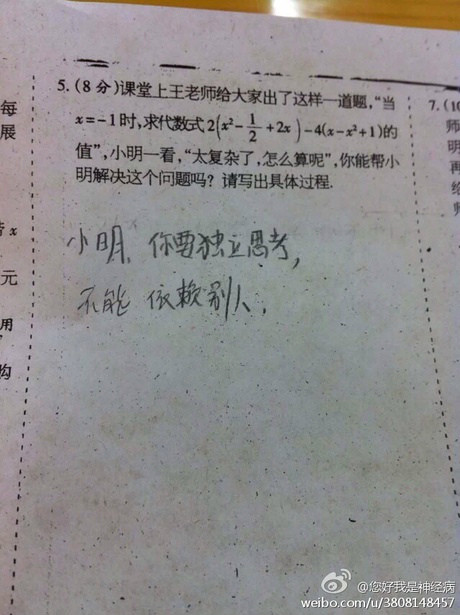 5.(8分)课堂上王老师给大家出了这样一道题,“当
x=-1时,求代数式2(x²-1/2+2x)-4(x-x²+1)的
值”,小明一看,“太复杂了,怎么算呢”,你能帮小
明解决这个问题吗?请写出具体过程.
小明、你要独立思考,
不能依赖别人.
每
展
x
元
用
购
7.(10
师
明
再
给
师
@您好我是神经病
weibo.com/u/3808148457